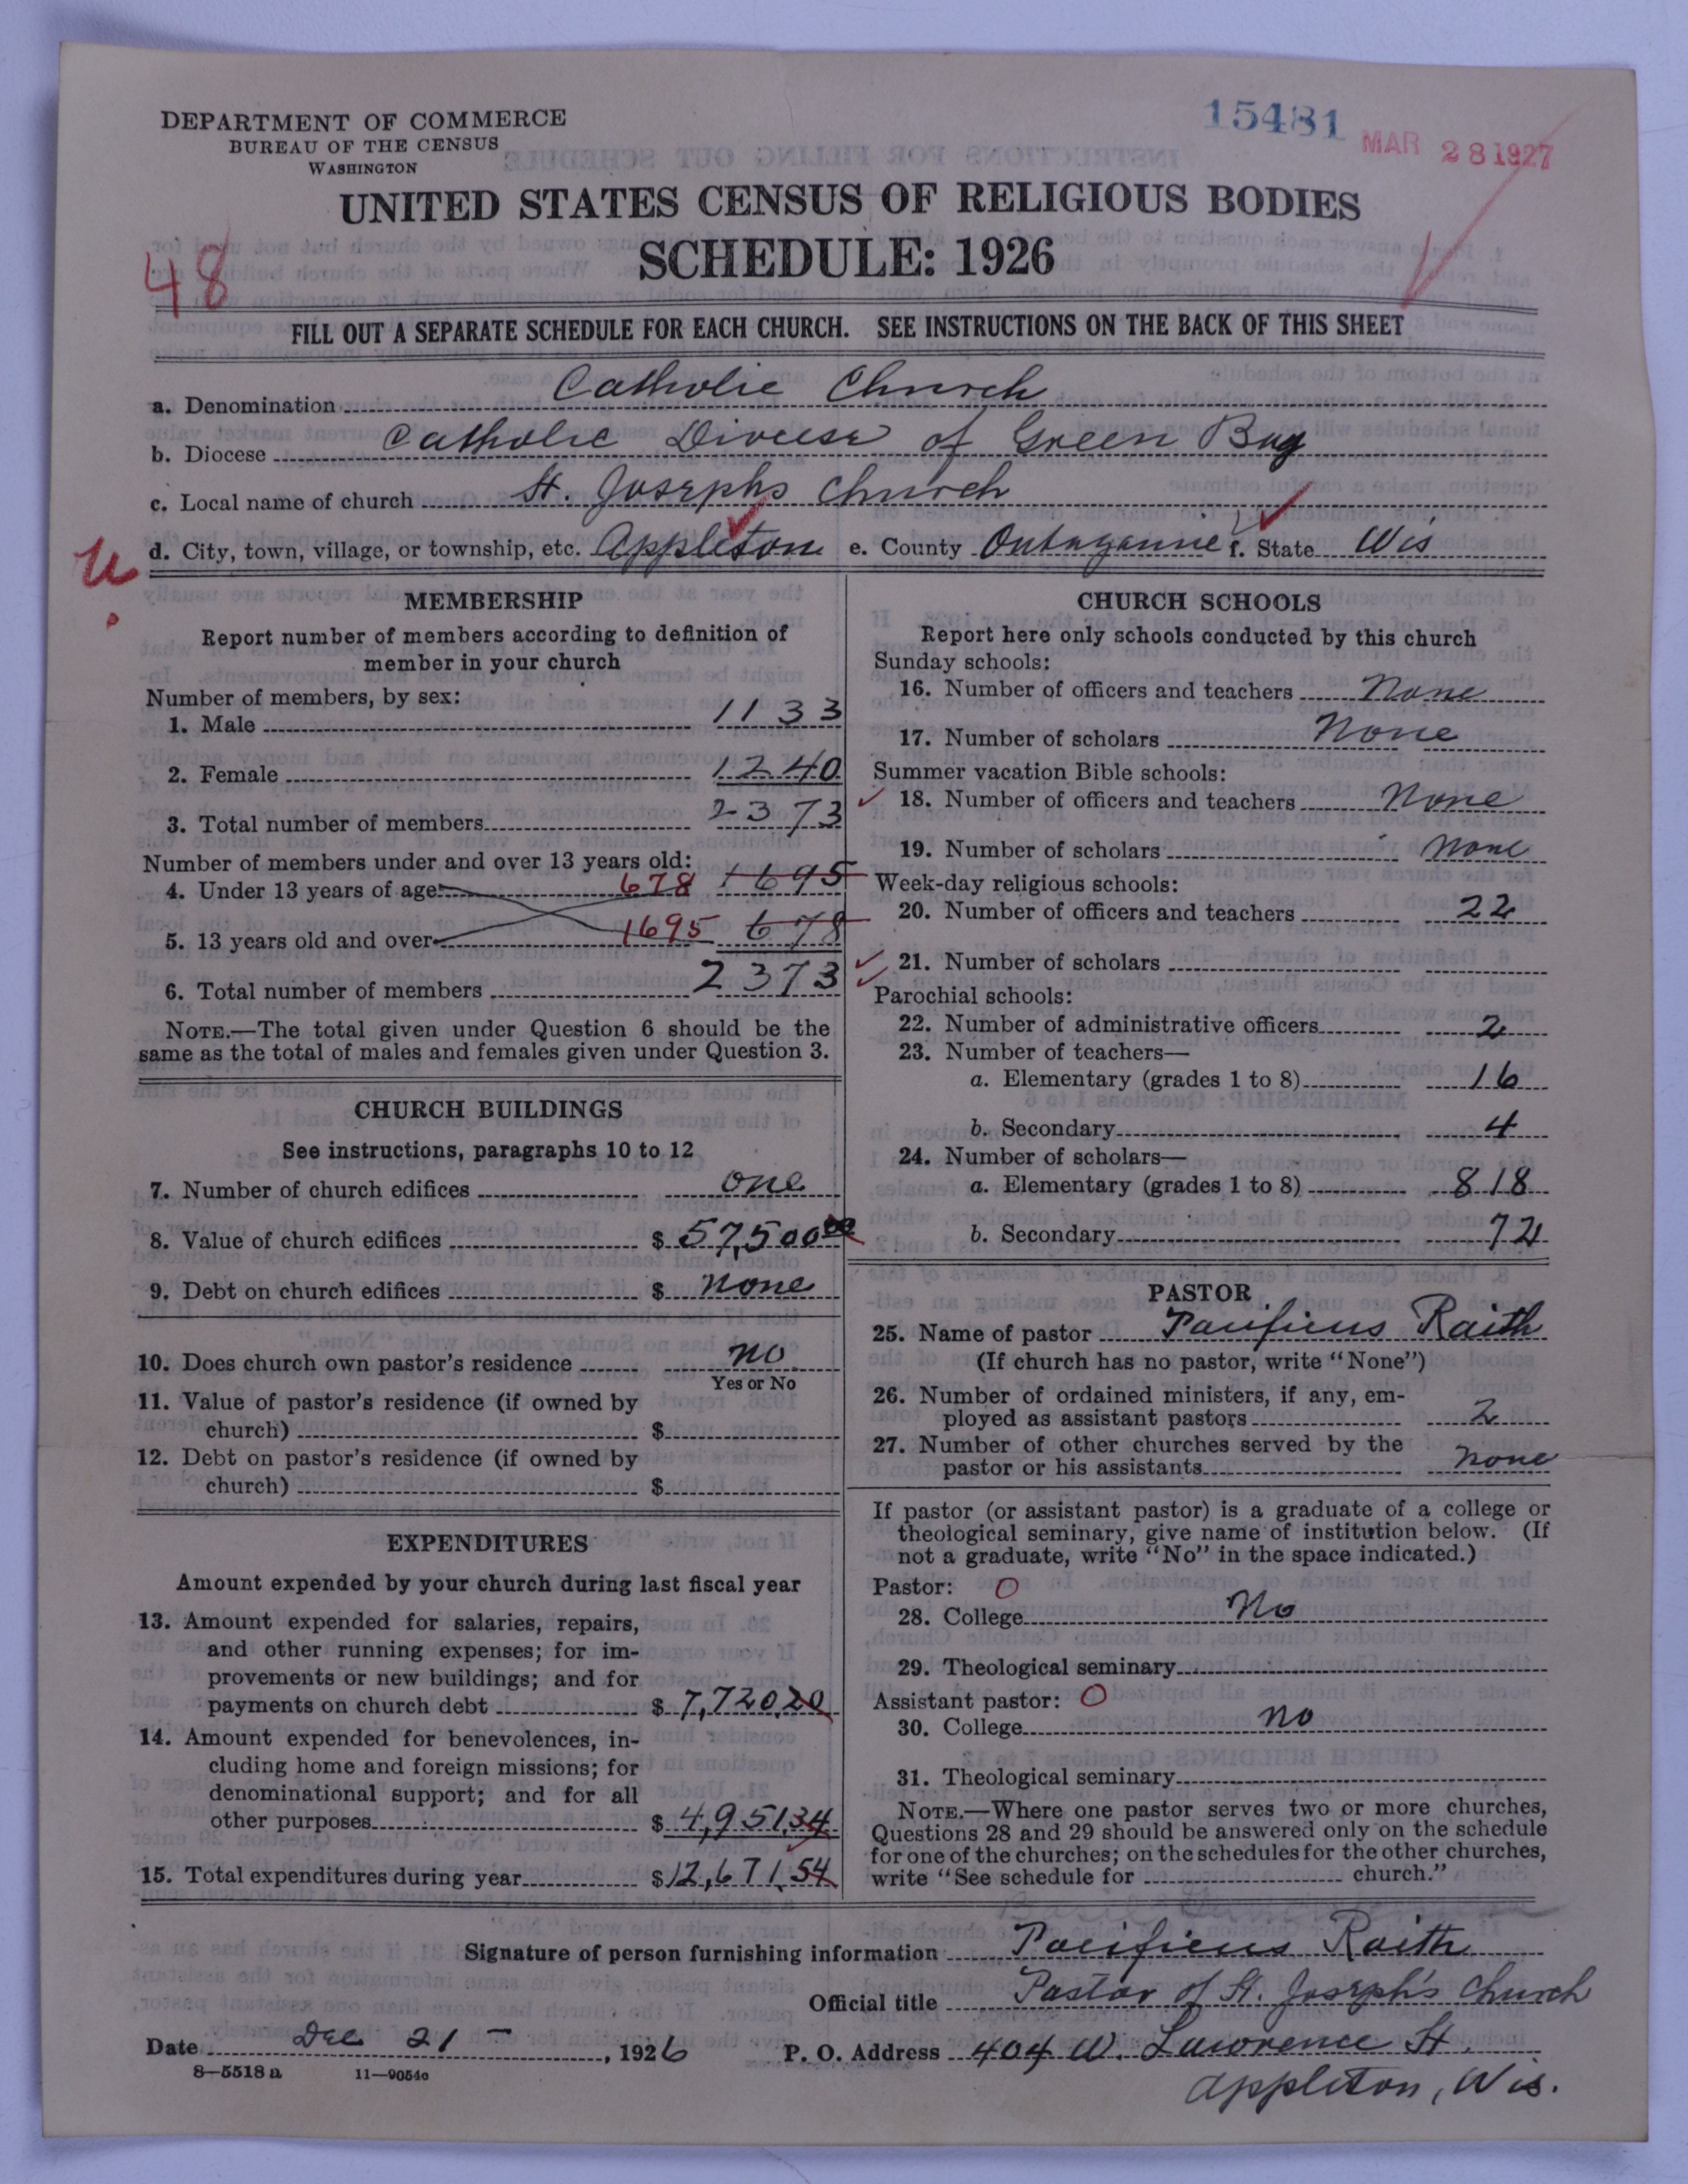 DEPARTMENT OF COMMERCE
BUREAU OF THE CENSUS
WASHINGTON
15481
MAR 28 1927
UNITED STATES CENSUS OF RELIGIOUS BODIES
SCHEDULE: 1926
48
FILL OUT A SEPARATE SCHEDULE FOR EACH CHURCH. SEE INSTRUCTIONS ON THE BACK OF THIS SHEET
a. Denomination Catholic Church
b. Diocese Catholic Diocese of Green Bay
c. Local name of church St. Josephs Church
d. City, town, village, or township, etc. Appleton e. County Outagamie f. State Wis
U.
MEMBERSHIP
Report number of members according to definition of
member in your church
Number of members, by sex:
1. Male 1133
2. Female 1240
3. Total number of members 2373
Number of members under and over 13 years old:
4. Under 13 years of age 678 1695
5. 13 years old and over 1695 678
6. Total number of members 2373
NOTE.—The total given under Question 6 should be the
same as the total of males and females given under Question 3.
CHURCH BUILDINGS
See instructions, paragraphs 10 to 12
7. Number of church edifices one
8. Value of church edifices $ 57,500 00
9. Debt on church edifices $ none
10. Does church own pastor's residence no
Yes or No
11. Value of pastor's residence (if owned by
church) $
12. Debt on pastor's residence (if owned by
church) $
EXPENDITURES
Amount expended by your church during last fiscal year
13. Amount expended for salaries, repairs,
and other running expenses; for im-
provements or new buildings; and for
payments on church debt $ 7,720.20
14. Amount expended for benevolences, in-
cluding home and foreign missions; for
denominational support; and for all
other purposes $ 4,951.34
15. Total expenditures during year $ 12,671.54
CHURCH SCHOOLS
Report here only schools conducted by this church
Sunday schools:
16. Number of officers and teachers None
17. Number of scholars None
Summer vacation Bible schools:
18. Number of officers and teachers none
19. Number of scholars none
Week-day religious schools:
20. Number of officers and teachers 22
21. Number of scholars
Parochial schools:
22. Number of administrative officers 2
23. Number of teachers—
a. Elementary (grades 1 to 8) 16
b. Secondary 4
24. Number of scholars—
a. Elementary (grades 1 to 8) 818
b. Secondary 72
PASTOR
25. Name of pastor Pacificus Raith
(If church has no pastor, write "None")
26. Number of ordained ministers, if any, em-
ployed as assistant pastors 2
27. Number of other churches served by the
pastor or his assistants none
If pastor (or assistant pastor) is a graduate of a college or
theological seminary, give name of institution below. (If
not a graduate, write "No" in the space indicated.)
Pastor: O
28. College No
29. Theological seminary
Assistant pastor: O
30. College no
31. Theological seminary
NOTE.—Where one pastor serves two or more churches,
Questions 28 and 29 should be answered only on the schedule
for one of the churches; on the schedules for the other churches,
write "See schedule for church."
Signature of person furnishing information Pacificus Raith
Official title Pastor of St. Joseph's Church
Date Dec 21 -, 1926 P. O. Address 404 W. Lawrence St.
Appleton, Wis.
8—5518 a 11—9054c